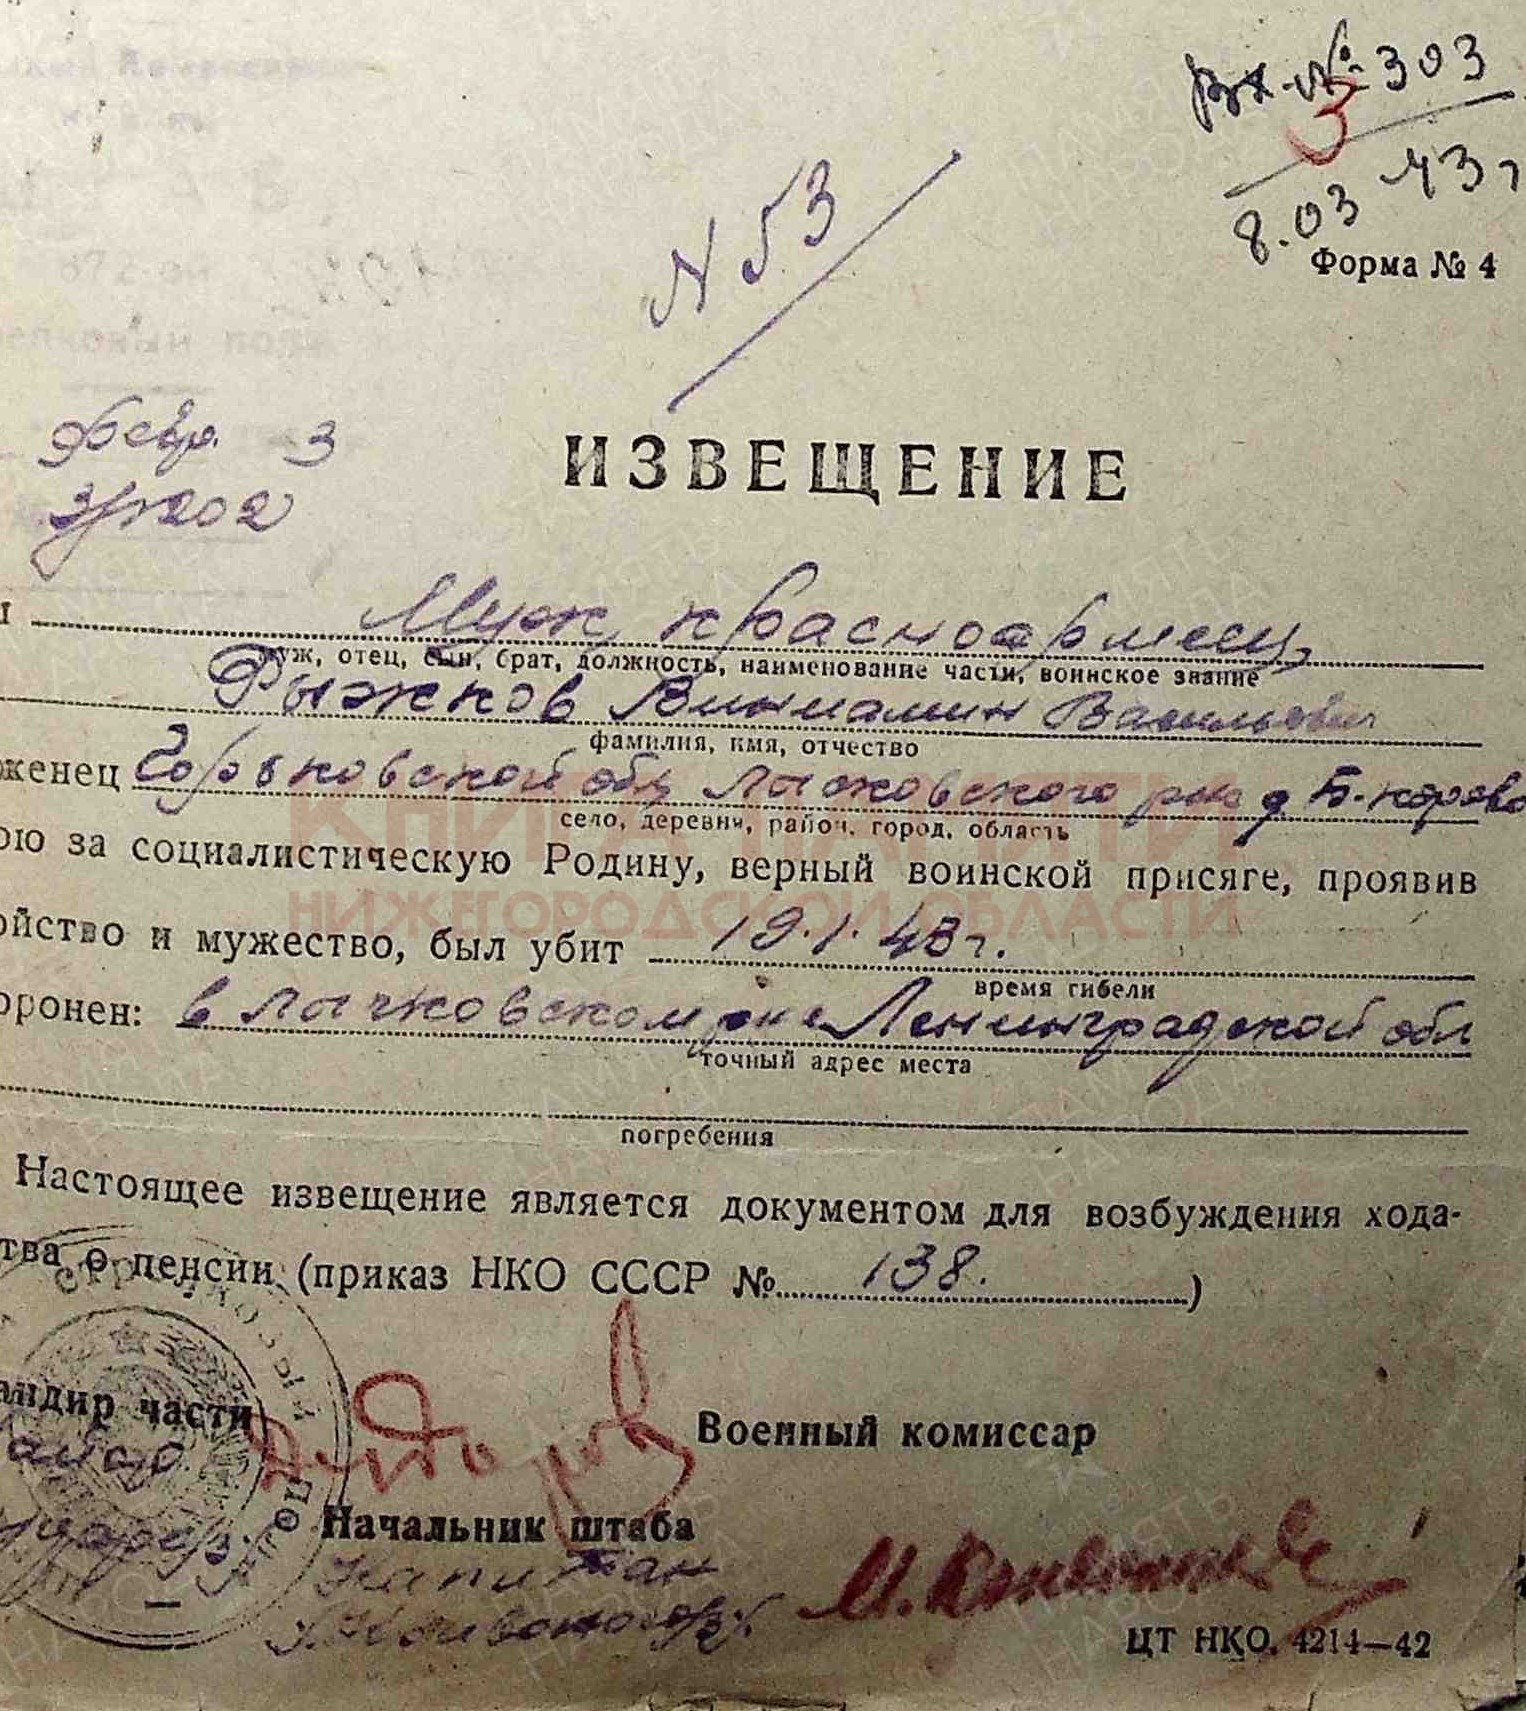 Вх. № 303
3
8.03 43г
Форма № 4
N 53
Февр. 3
ИЗВЕЩЕНИЕ
Муж красноармеец
муж, отец, сын, брат, должность, наименование части, воинское звание
Рыжков Виниамин Васильевич
фамилия, имя, отчество
женец Горьковской обл Лысковского рна д Б-корево
село, деревня, район, город, область
ою за социалистическую Родину, верный воинской присяге, проявив
ойство и мужество, был убит 19.1.43г.
время гибели
оронен: в Лычковском рне Ленинградской обл
точный адрес места
погребения
Настоящее извещение является документом для возбуждения хода-
тва о пенсии (приказ НКО СССР № 138. )
андир части
Военный комиссар
Начальник штаба
Капитан
ЦТ НКО. 4214—42
КНИГА ПАМЯТИ
НИЖЕГОРОДСКОЙ ОБЛАСТИ